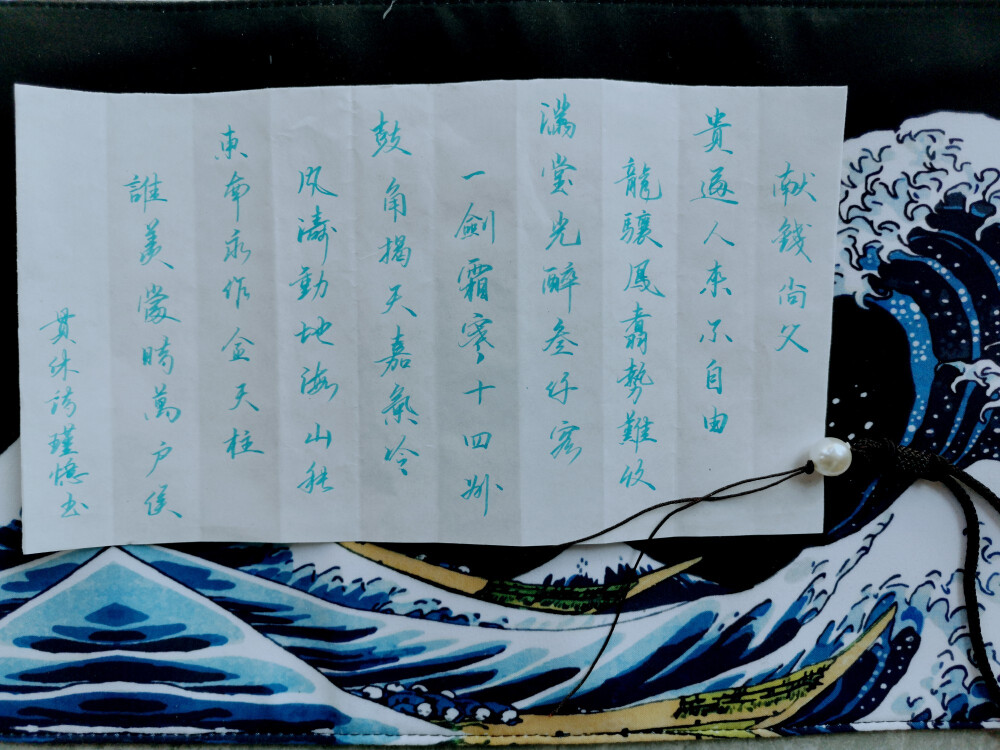 献錢尚父
貴逼人来不自由
龍驤鳳翥勢難收
滿堂花醉叁仟客
一劍霜寒十四州
鼓角揭天嘉氣冷
风濤動地海山秋
東南永作金天柱
誰羨當時萬户侯
貫休詩瑾憶书